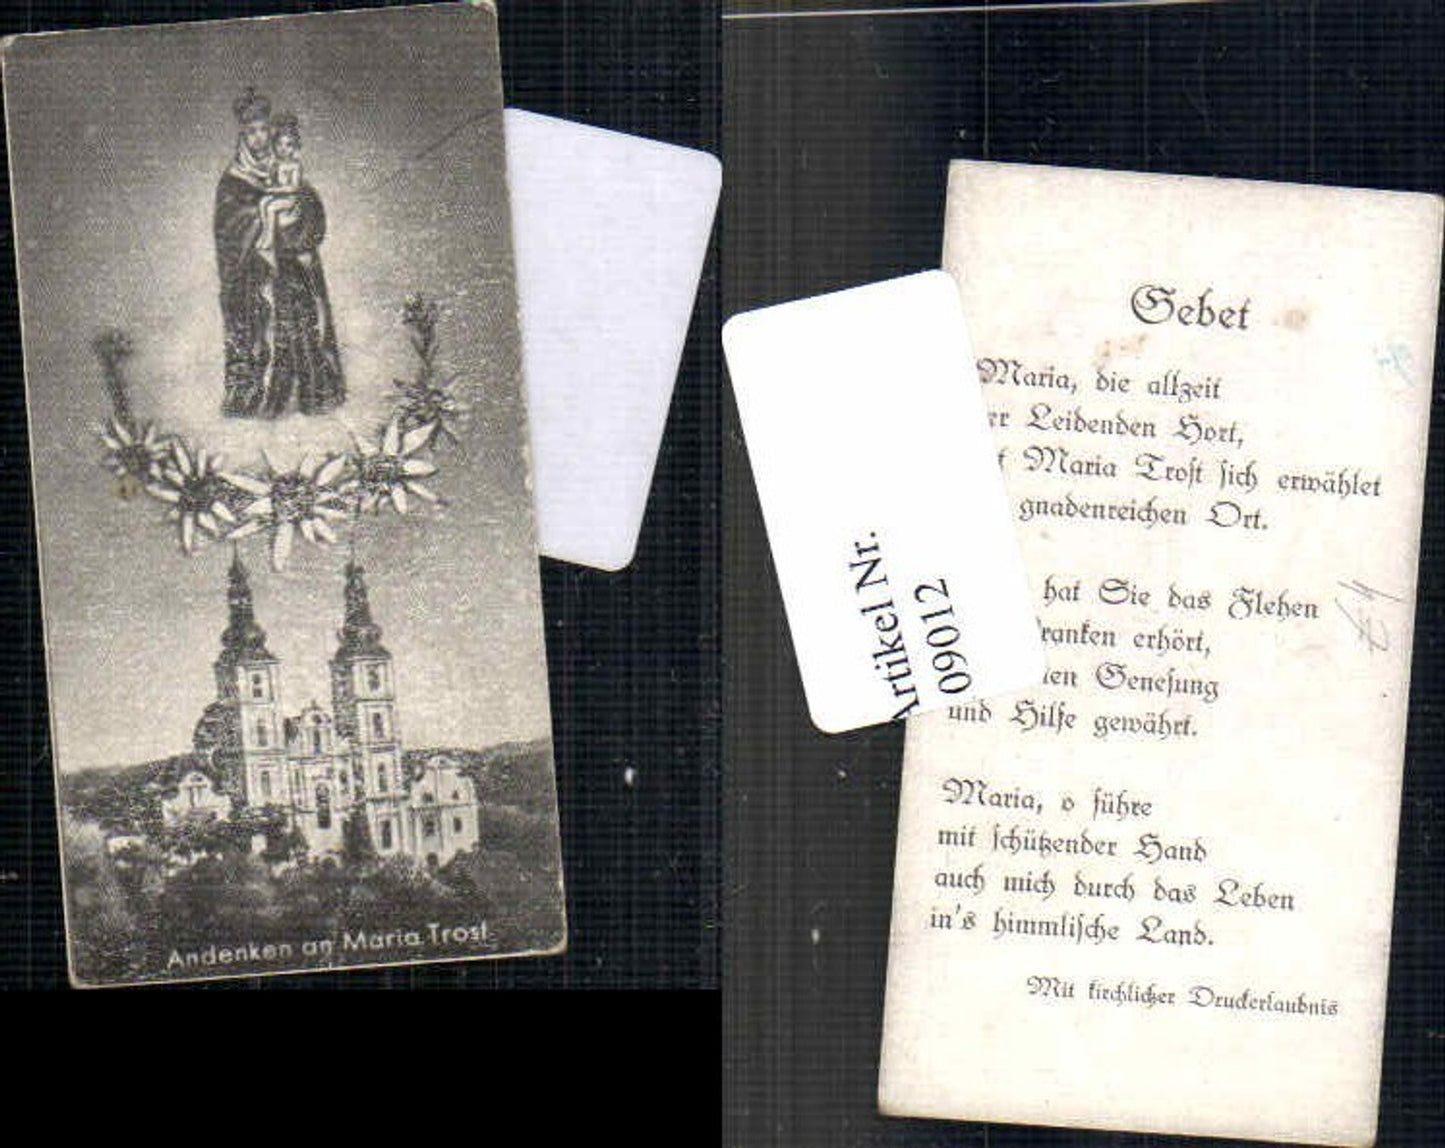 Andenken an Maria Trost
Artikel Nr.
09012
Gebet
Maria, die allzeit
Leidenden Hort,
Maria Trost sich erwählet
gnadenreichen Ort.
hat Sie das Flehen
erhört,
Genesung
und Hilfe gewährt.
Maria, o führe
mit schützender Hand
auch mich durch das Leben
in's himmlische Land.
Mit kirchlicher Druckerlaubnis